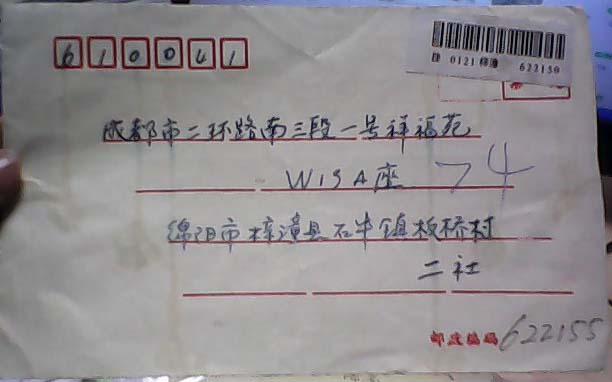 610041
挂 0121 梓潼 622150
成都市二环路南三段一号祥福苑
W19A座 74
绵阳市梓潼县石牛镇板桥村
二社
邮政编码 622155